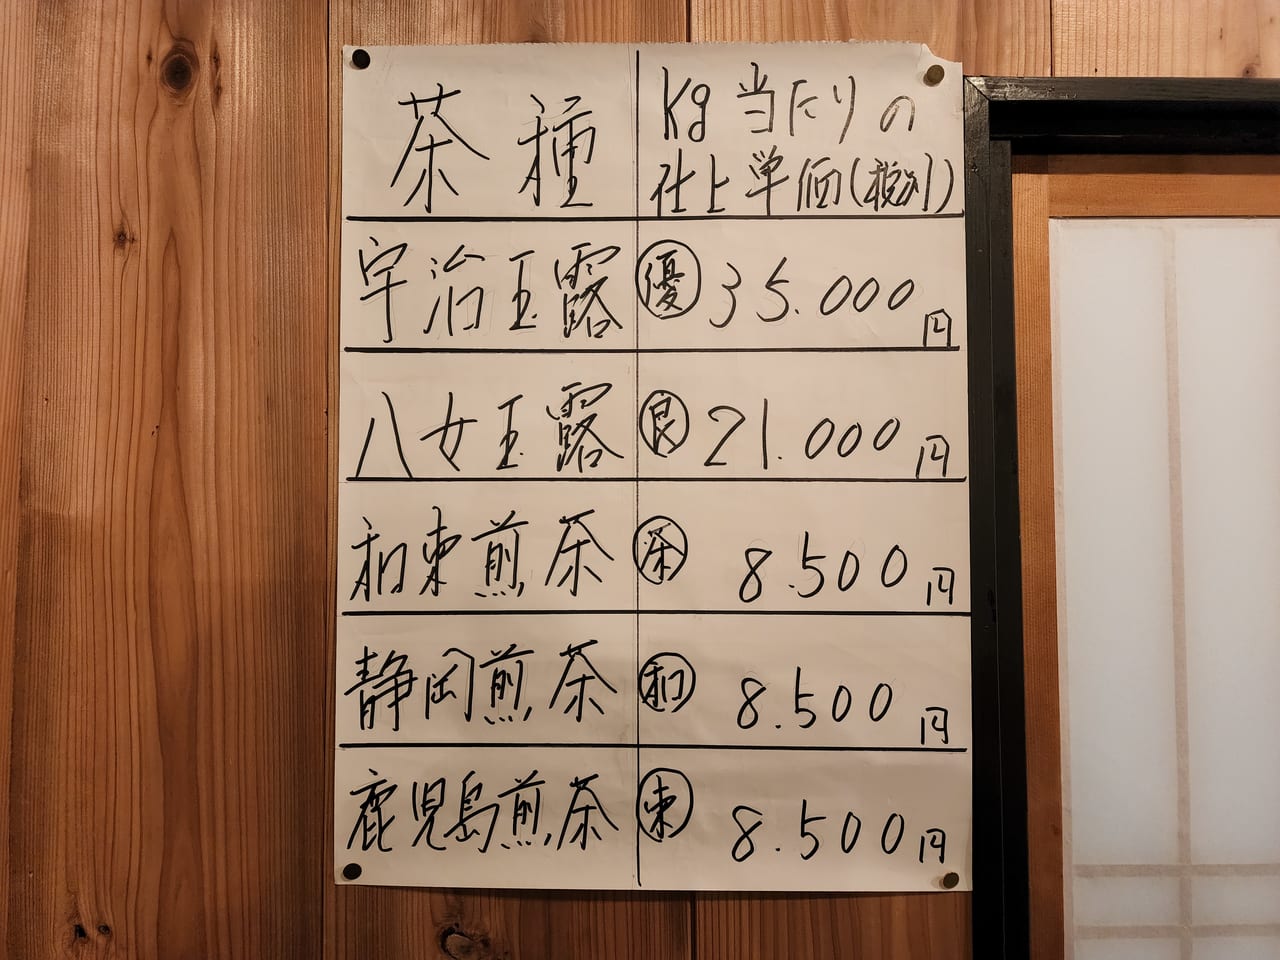 茶種
kg当たりの
仕上単価(税別)
宇治玉露 優 35.000円
八女玉露 良 21.000円
和束煎茶 茶 8.500円
静岡煎茶 和 8.500円
鹿児島煎茶 束 8.500円